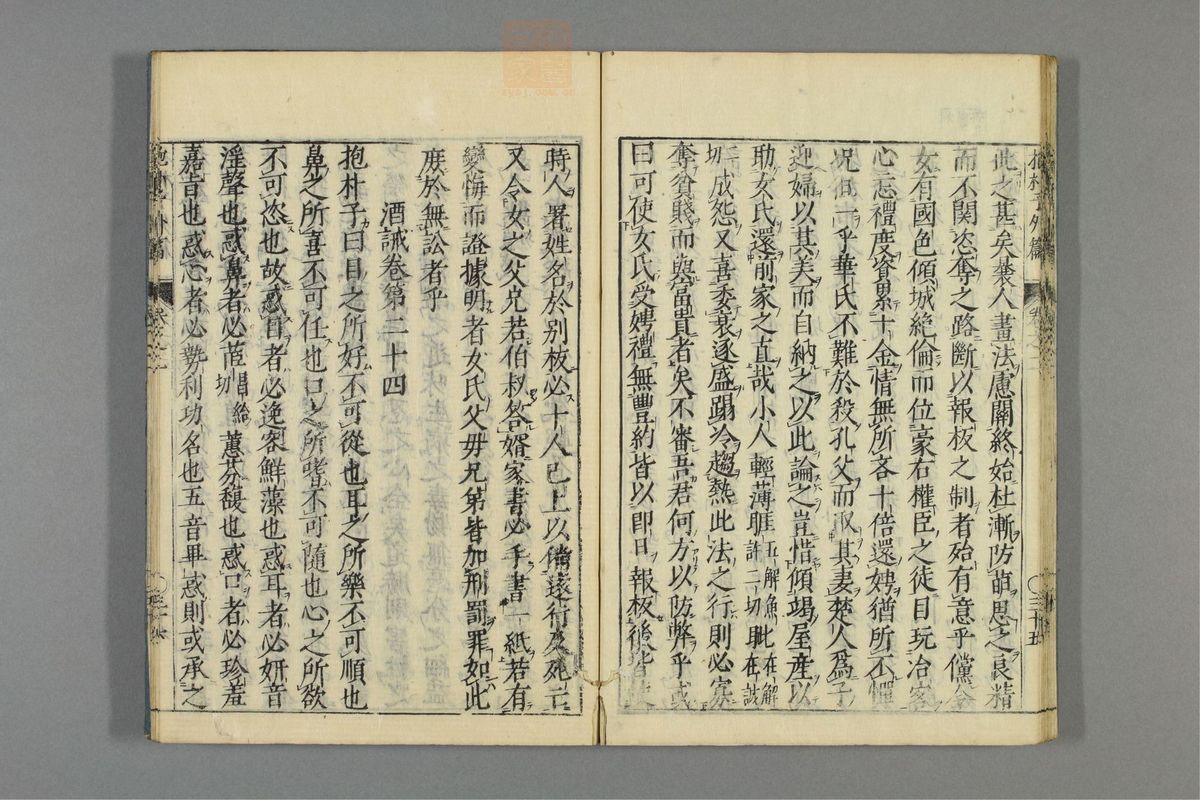 此之甚矣裴人畫法慮關終始杜漸防萌思之良精
而不関恣奪之路斷以報板之制者殆有意乎儻令
女有國色傾城絶倫而位豪右權臣之徒目玩冶容
心忘禮度資累十金情無所吝十倍還娉猶所不憚
況但一乎華氏不難於殺孔父而取其妻楚人爲子
迎婦以其美而自納之以此論之豈惜傾竭屋産以
助女氏還前家之直哉小人輕薄睚五解魚眦在解
切成怨又喜委衰逐盛蹋冷趨熱此法之行則必
奪貧賤而與富貴者矣不審吾君何方以防弊乎或
曰可使女氏受娉禮無豐約皆以即日報板後皆使
時人署姓名於别板必十人已上以備遠行及死亡
又令女之父兄若伯叔答婿家書必手書一紙若有
變悔而證據明者女氏父母兄弟皆加刑罰罪如此
庶於無訟者乎
酒誡卷第二十四
抱朴子曰目之所好不可從也耳之所樂不可順也
鼻之所喜不可任也口之所嗜不可隨也心之所欲
不可恣也故惑目者必逸容鮮藻也惑耳者必妍音
淫聲也惑鼻者必茝昌紿切蕙芬馥也惑口者必珍羞
嘉旨也惑心者必勢利功名也五音畢惑則或承之